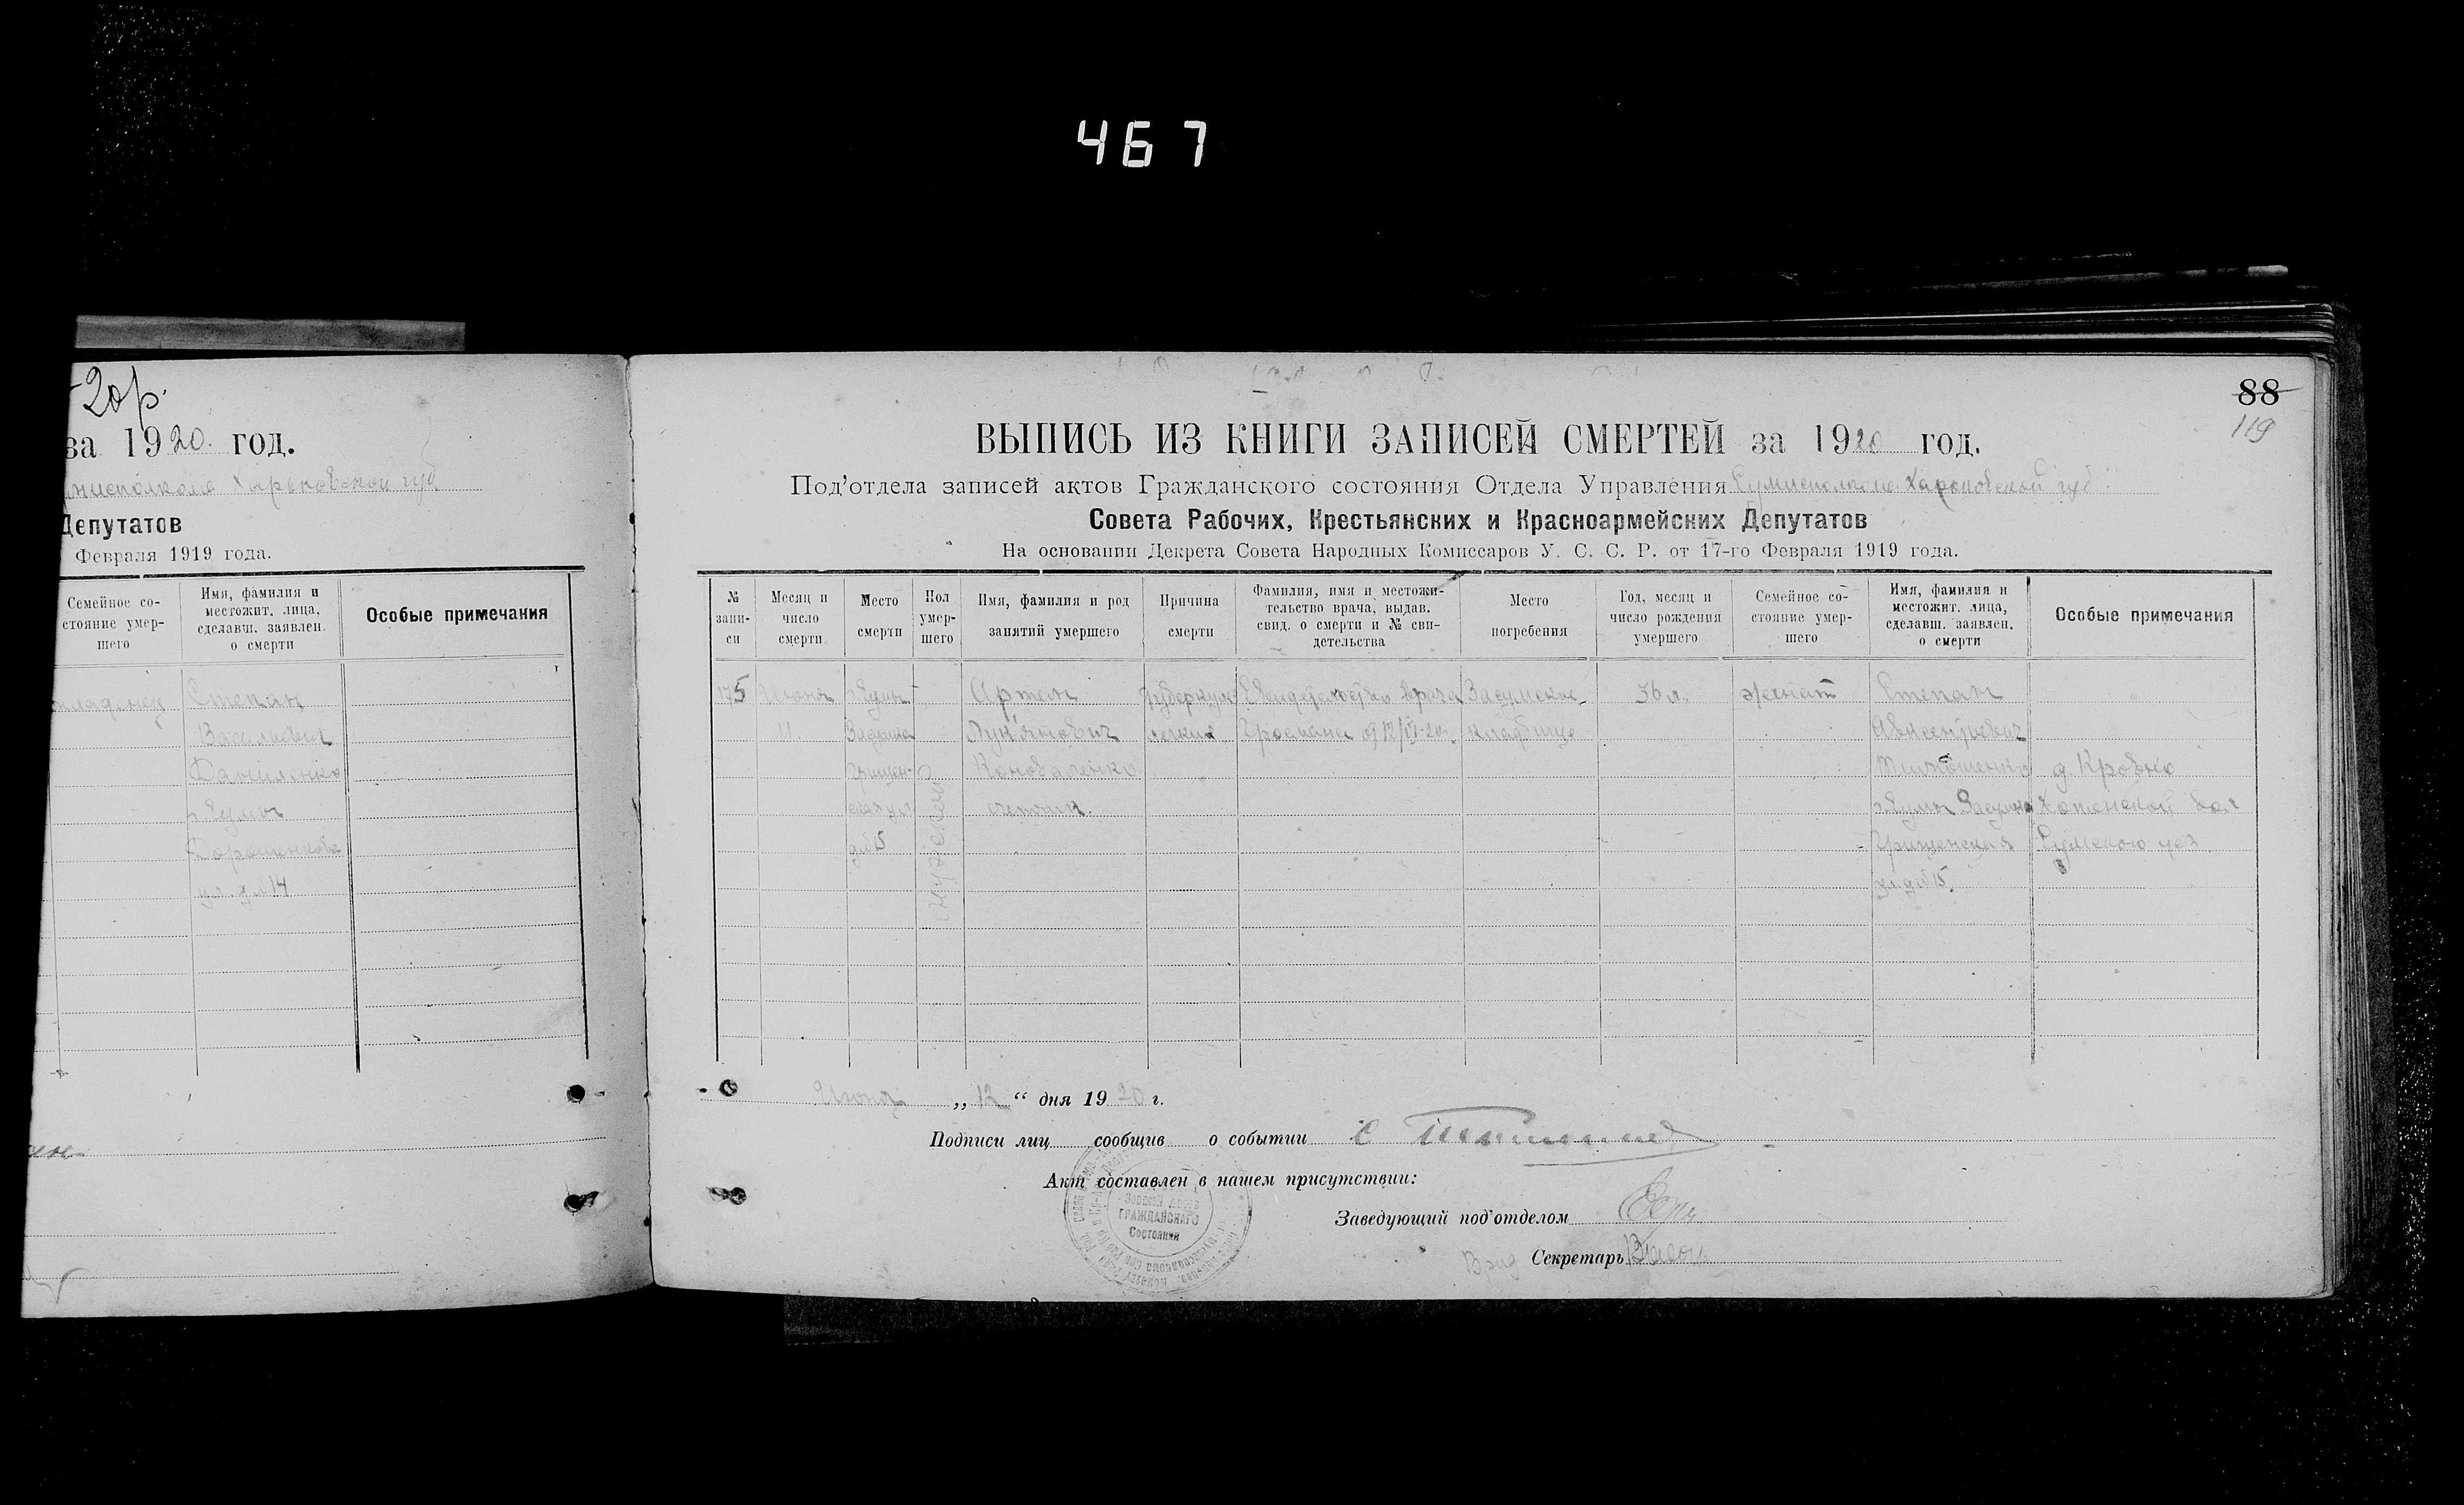 467
20р.
за 1920. год.
Харьковской губ
Депутатов
Февраля 1919 года.
Семейное со-
стояние умер-
шего
Имя, фамилия и
местожит. лица,
сделавш. заявлен.
о смерти
Особые примечания
младенец
Степан
Васильевич
Даниленко
г. Сумы
ул. д. № 14
88
119
ВЫПИСЬ ИЗ КНИГИ ЗАПИСЕЙ СМЕРТЕЙ за 1920 год.
Под'отдела записей актов Гражданского состояния Отдела Управления Сумисполкома Харьковской губ.
Совета Рабочих, Крестьянских и Красноармейских Депутатов
На основании Декрета Совета Народных Комиссаров У. С. С. Р. от 17-го Февраля 1919 года.
№
запи-
си
Месяц и
число
смерти
Место
смерти
Пол
умер-
шего
Имя, фамилия и род
занятий умершего
Причина
смерти
Фамилия, имя и местожи-
тельство врача, выдав.
свид. о смерти и № сви-
детельства
Место
погребения
Год, месяц и
число рождения
умершего
Семейное со-
стояние умер-
шего
Имя, фамилия и
местожит. лица,
сделавш. заявлен.
о смерти
Особые примечания
175
Июня
11.
г. Сумы
Засумка
Грищен-
ская ул
д № 15
мужской
Артем
Лукьянович
Коноваленко
Туберкулез
легких
Свидетельство врача
от 12/VI-20г.
Засумское
кладбище
36 л.
женат
Степан
Авксентиевич
г. Сумы Засумка
Грищенская
ул. д № 15
д. Кровно
Хотенской вол
Сумского уез.
Июня „12“ дня 1920 г.
Подписи лиц сообщив о событии С
Акт составлен в нашем присутствии:
Записей Актов
ГРАЖДАНСКАГО
Состояния
Заведующий под'отделом
Врид Секретарь